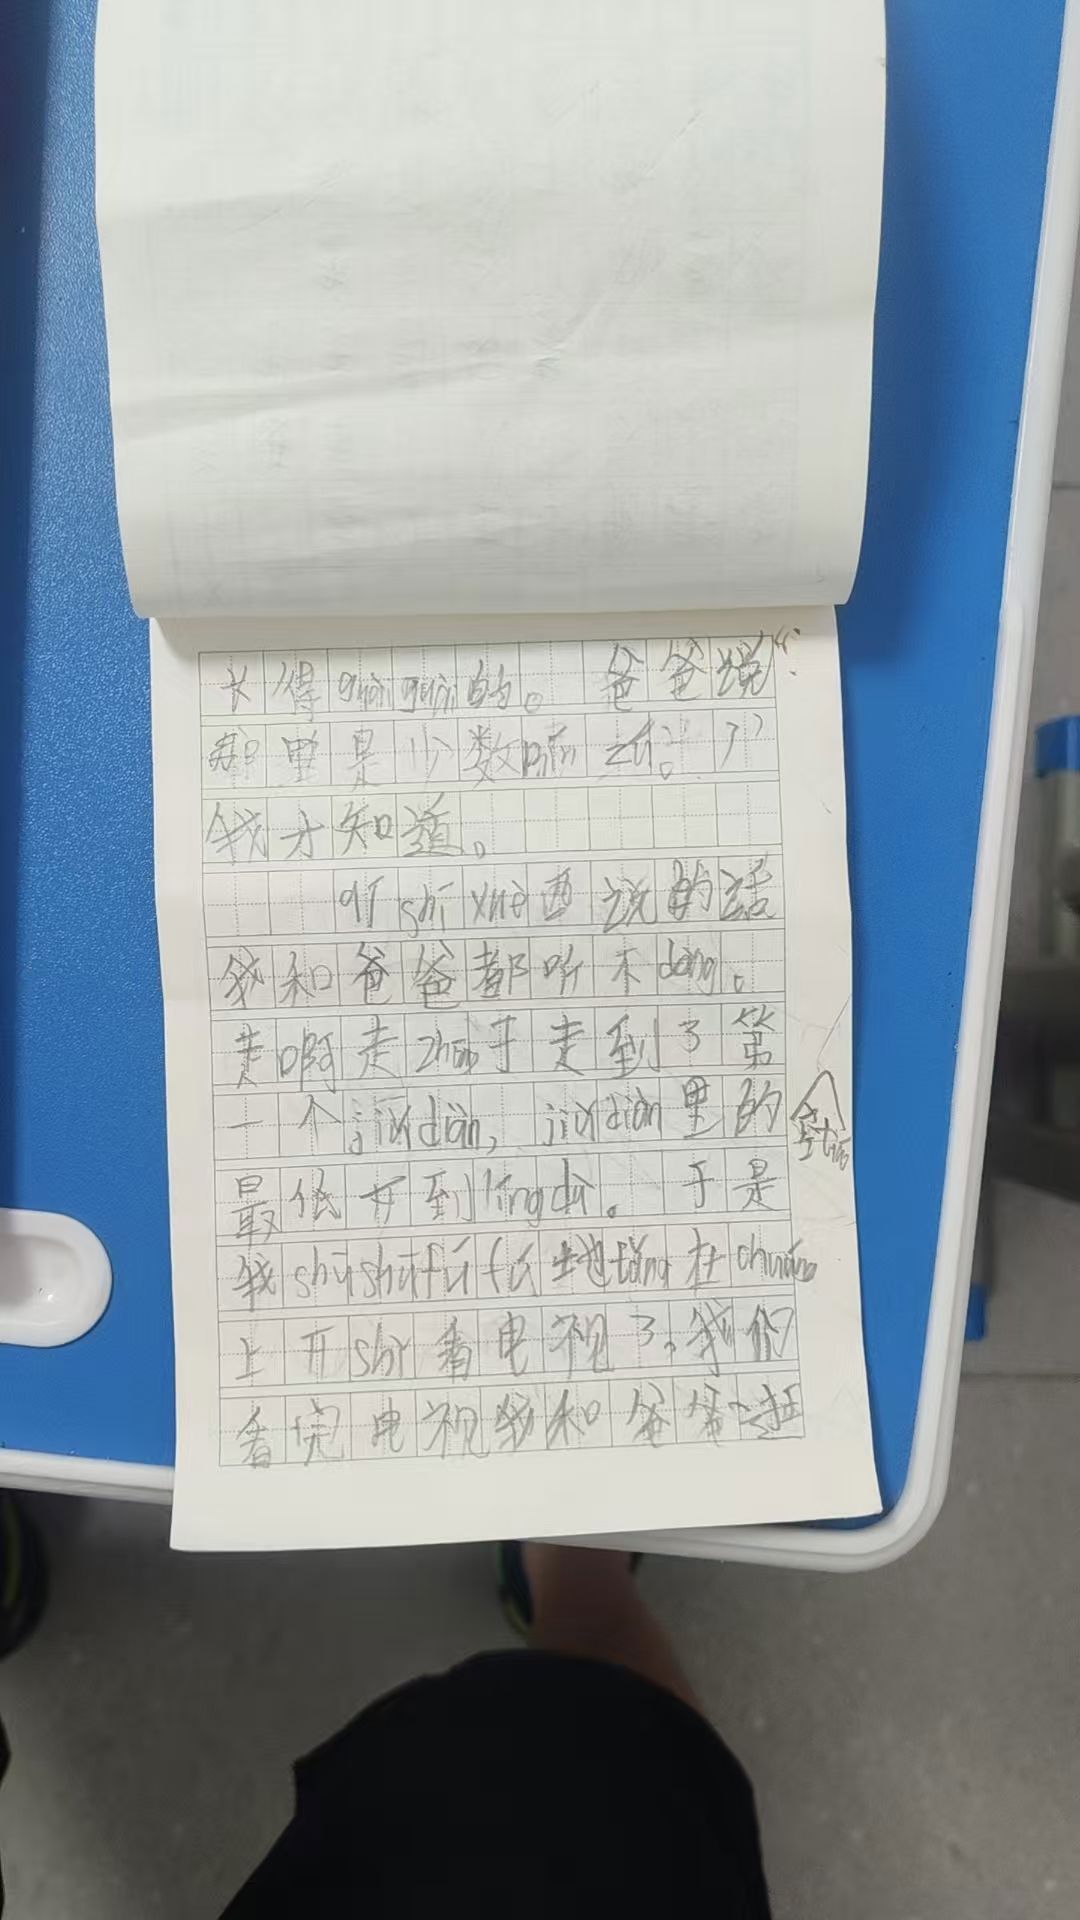 长得guài guài的。 爸爸说:“
那里是少数mín zú。”
我才知道。
听shī xuě 说的话
我和爸爸都听不dǒng。
走啊走zhōng于走到了第
一个jiǔdiàn, jiǔdiàn里的空tiáo
最低开到língdù。 于是
我shūshūfúfú地tǎng在chuáng
上开shǐ看电视了。我们
看完电视我和爸爸